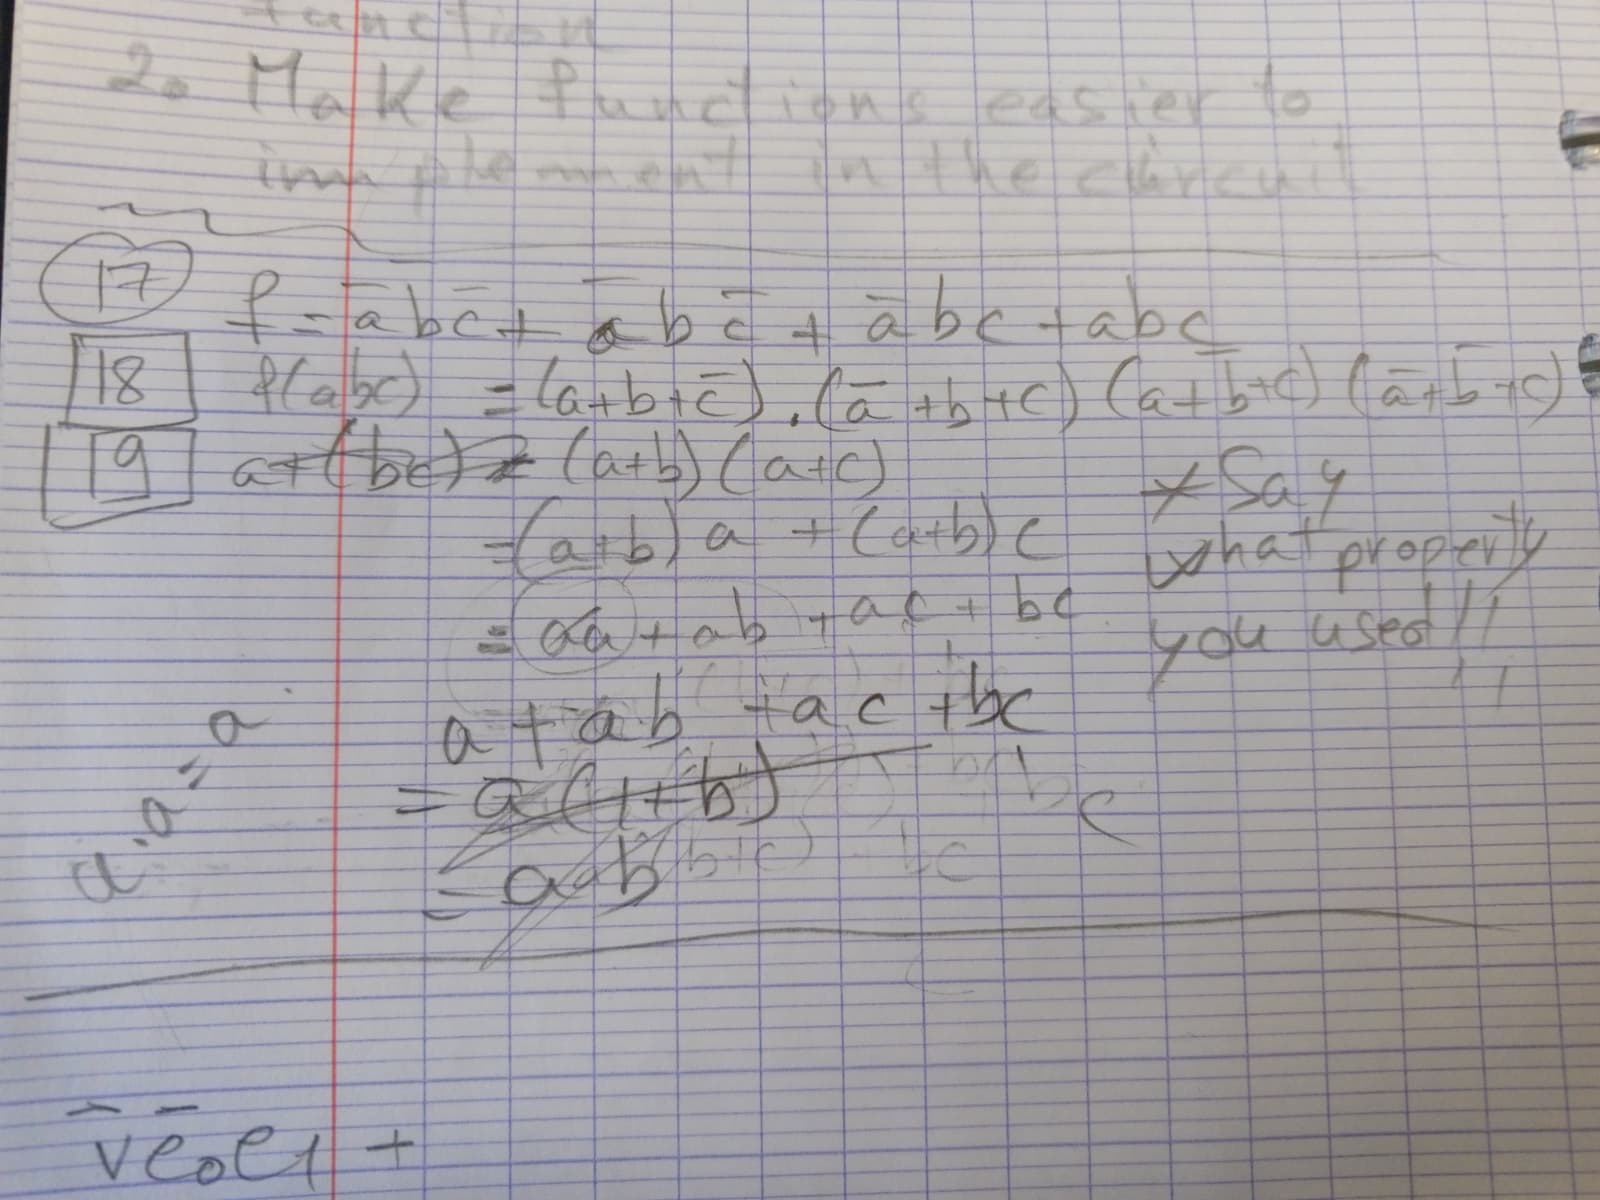 function
2. Make functions easier to
implement in the circuit
17 f = a̅bc̅ + a̅bc̅ + a̅bc + abc
18 f(abc) = (a+b+c̅).(a̅+b+c)(a+b̅+c)(a̅+b̅+c)
19 a+(bc) = (a+b)(a+c)
= (a+b)a + (a+b)c
= aa + ab + ac + bc
* Say
what property
you used!!
a + ab + ac + bc
a.a = a
= a(1+b)
c
= a+b
v̅e̅₀e₁ +